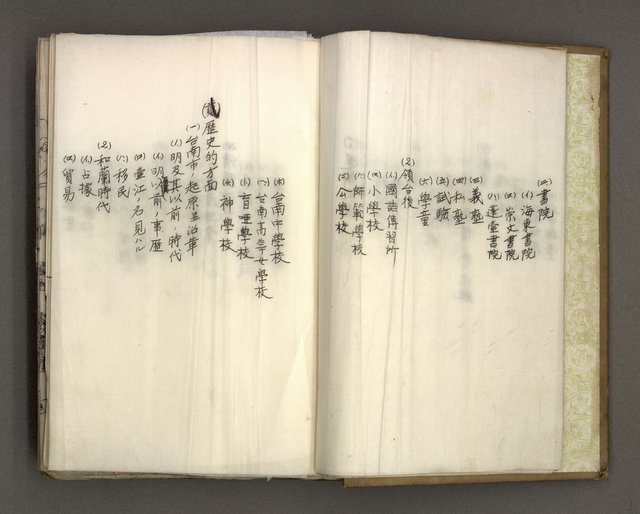 (三)書院
(イ)海東書院
(ロ)崇文書院
(ハ)蓬壺書院
(三)義塾
(四)私塾
(五)試驗
(六)學童
(2)領台後
(イ)國語傳習所
(ロ)小學校
(ハ)師範學校
(ニ)公學校
(ホ)台南中學校
(ヘ)台南高等女學校
(ト)盲啞學校
(チ)神學校
歷史的方面
(一)台南市ノ起原並沿革
(1)明及其以前ノ時代
(イ)明以前ノ事歷
(ロ)臺江ノ名見ハル
(ハ)移民
(2)和蘭時代
(イ)占據
(ロ)貿易